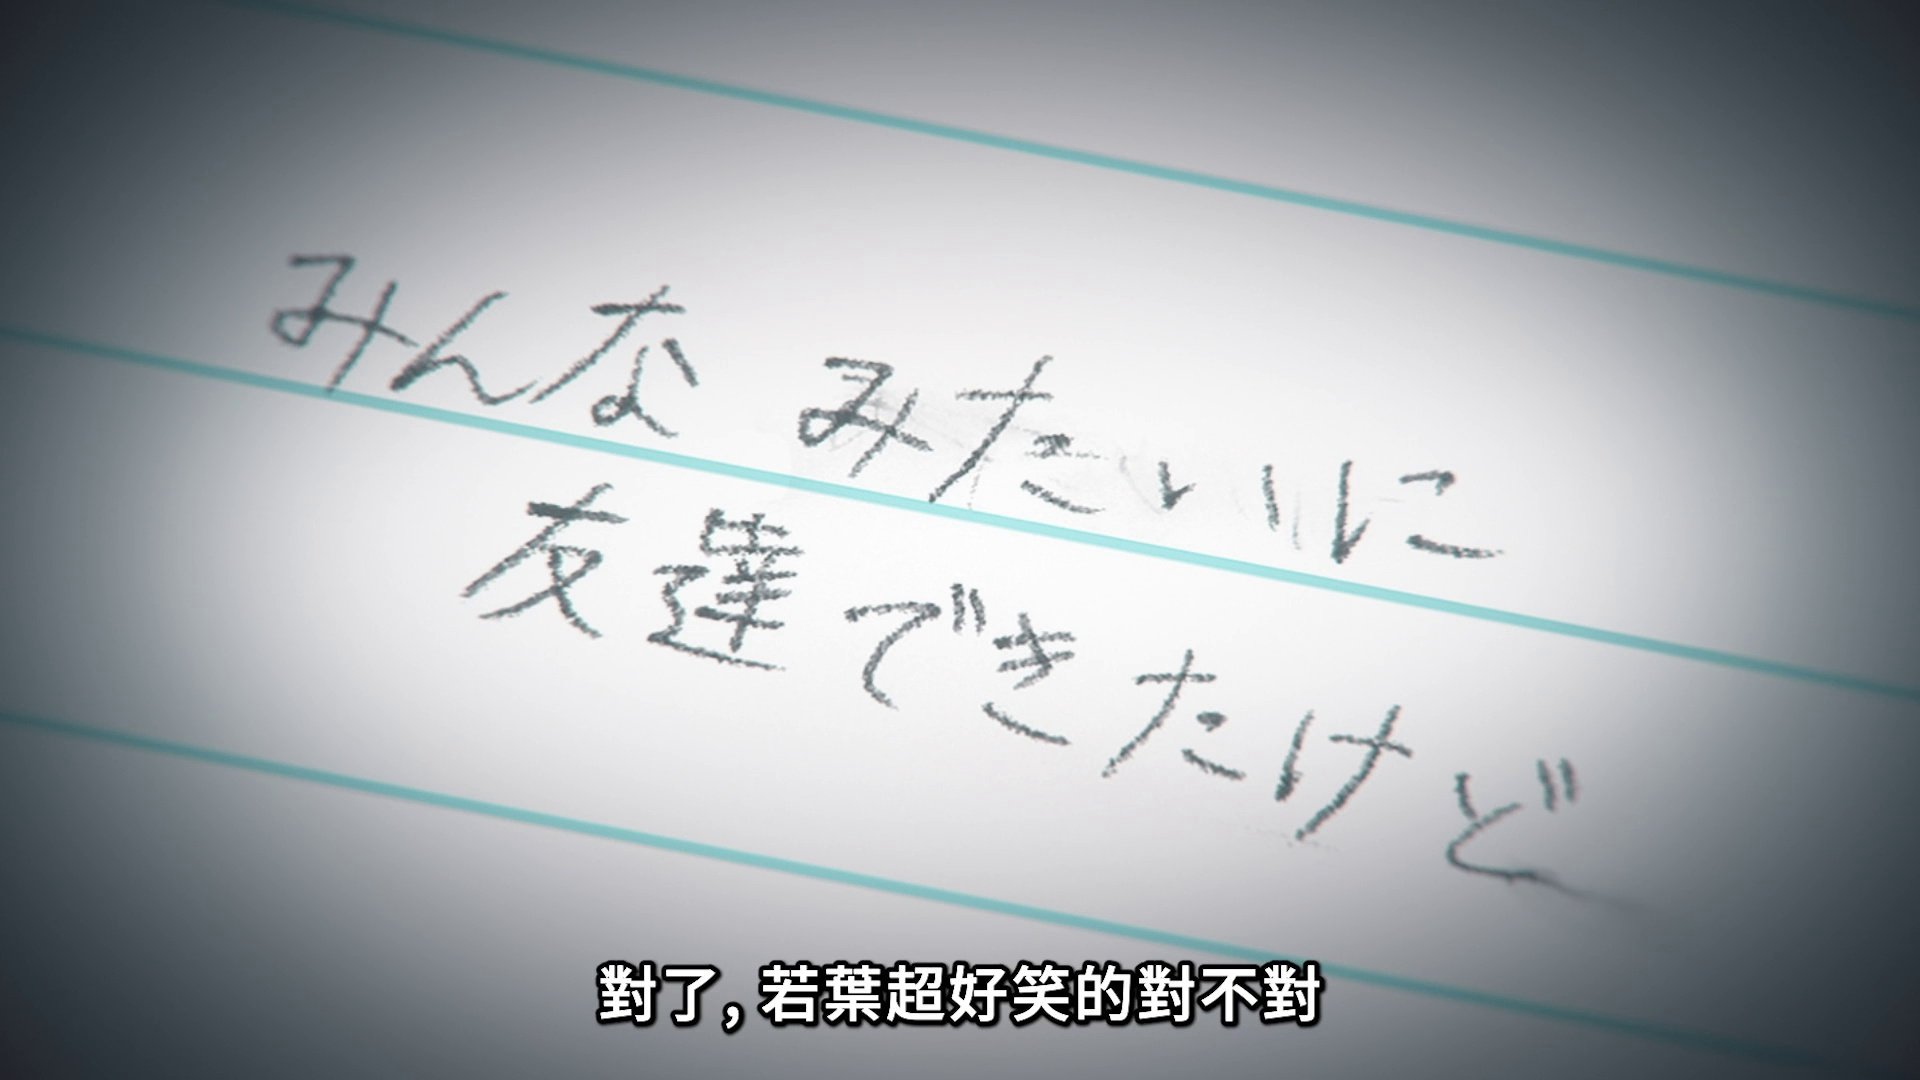 みんなみたいに
友達できたけど
對了,若葉超好笑的對不對